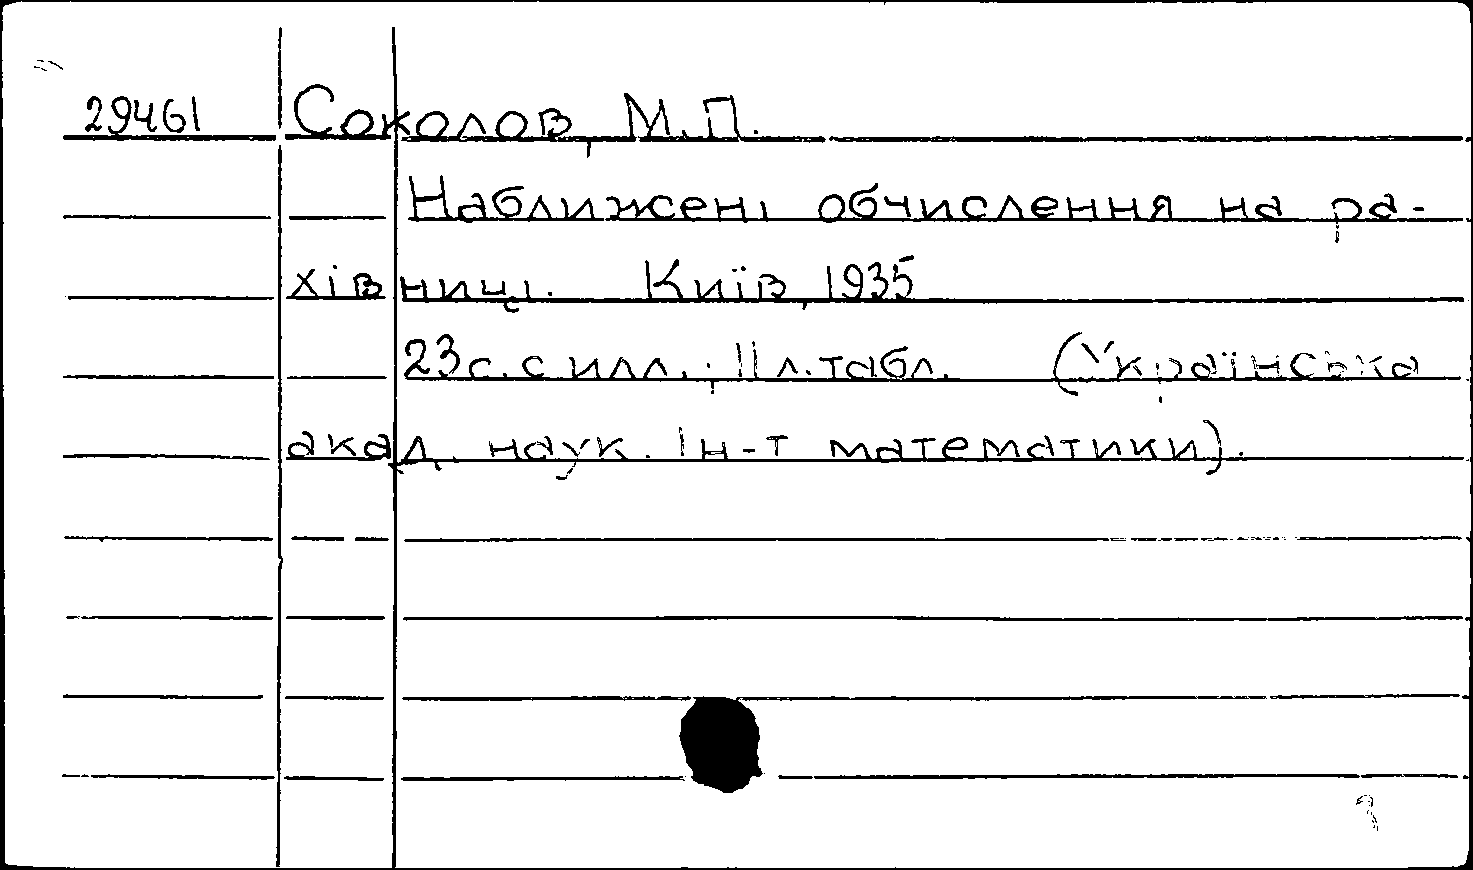 29461 Соколов, М.П.
Наближені обчислення на ра-
хівниці. Київ, 1935
23с. с илл.; 11 л. табл. (Українська
акад. наук. Ін-т математики).